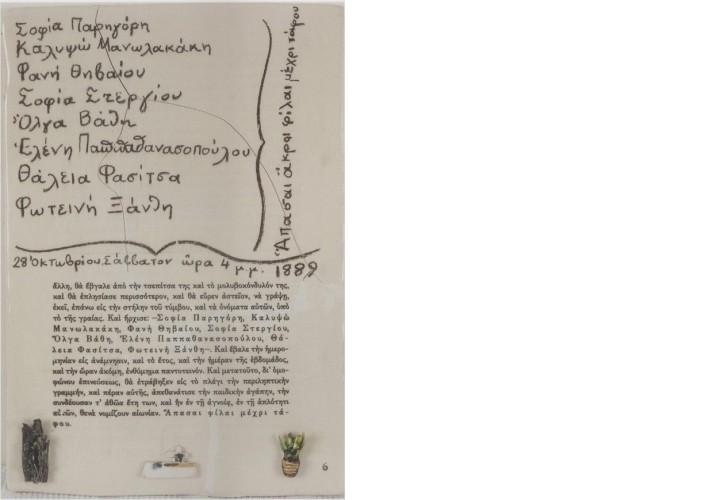 Σοφία Παρηγόρη
Καλυψώ Μανωλακάκη
Φανή Θηβαίου
Σοφία Στεργίου
Ὄλγα Βάθη
Ἑλένη Παππαθανασοπούλου
Θάλεια Φασίτσα
Φωτεινή Ξάνθη
Ἅπασαι ἄκραι φίλαι μέχρι τάφου
28 Ὀκτωβρίου, Σάββατον ὥρα 4 μ.μ. 1889
ἄλλη, θὰ ἔβγαλε ἀπὸ τὴν τσεπίτσα της καὶ τὸ μολυβοκόνδυλόν της,
καὶ θὰ ἐπλησίασε περισσότερον, καὶ θὰ εὗρεν ἀστεῖον, νὰ γράψῃ,
ἐκεῖ, ἐπάνω εἰς τὴν στήλην τοῦ τύμβου, καὶ τὰ ὀνόματα αὐτῶν, ὑπὸ
τὸ τῆς γραίας. Καὶ ἤρχισε: –Σοφία Παρηγόρη, Καλυψὼ
Μανωλακάκη, Φανὴ Θηβαίου, Σοφία Στεργίου,
Ὄλγα Βάθη, Ἑλένη Παππαθανασοπούλου, Θά-
λεια Φασίτσα, Φωτεινὴ Ξάνθη–. Καὶ ἔβαλε τὴν ἡμερο-
μηνίαν εἰς ἀνάμνησιν, καὶ τὸ ἔτος, καὶ τὴν ἡμέραν τῆς ἑβδομάδος,
καὶ τὴν ὥραν ἀκόμη, ἐνθύμημα παντοτεινόν. Καὶ ματατοῦτο, δι' ὁμο-
φώνου ἐπινεύσεως, θὰ ἐτράβηξεν εἰς τὸ πλάγι τὴν περιληπτικὴν
γραμμήν, καὶ πέραν αὐτῆς, ἀπεθανάτισε τὴν παιδικὴν ἀγάπην, τὴν
συνδέουσαν τ' ἀθῶα ἔτη των, καὶ ἣν ἐν τῇ ἀγνοίᾳ, ἐν τῇ ἁπλότητι
αὐτῶν, θενὰ νομίζουν αἰωνίαν. Ἅπασαι φίλαι μέχρι τά-
φου.
6